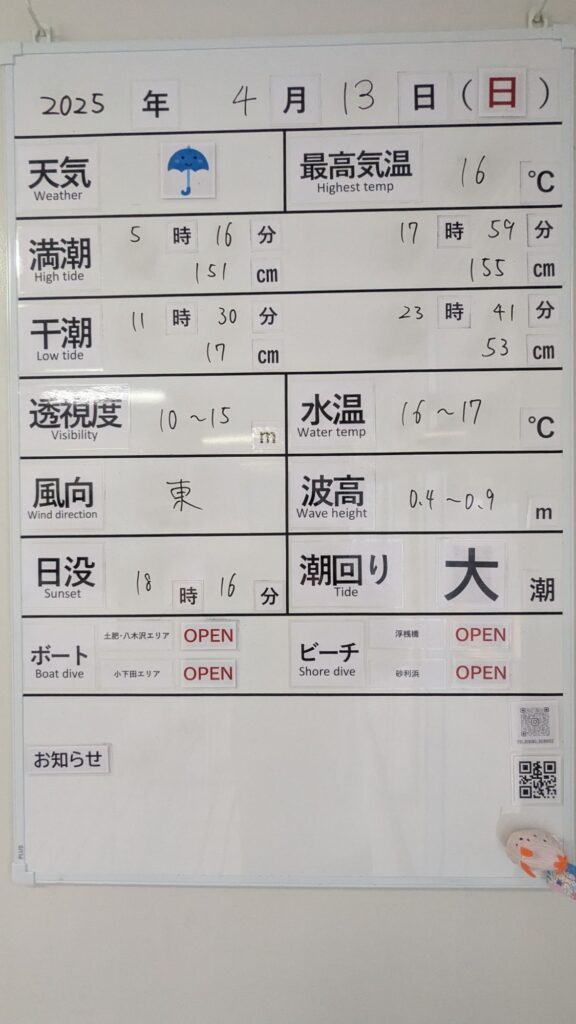 2025 年 4 月 13 日 (日)
天気 最高気温 16 ℃
Weather Highest temp
満潮 5 時 16 分 17 時 59 分
High tide 151 cm 155 cm
干潮 11 時 30 分 23 時 41 分
Low tide 17 cm 53 cm
透視度 10〜15 m 水温 16〜17 ℃
Visibility Water temp
風向 東 波高 0.4〜0.9 m
Wind direction Wave height
日没 18 時 16 分 潮回り 大 潮
Sunset Tide
ボート 土肥・八木沢エリア OPEN ビーチ 浮桟橋 OPEN
Boat dive 小下田エリア OPEN Shore dive 砂利浜 OPEN
お知らせ
PLUS